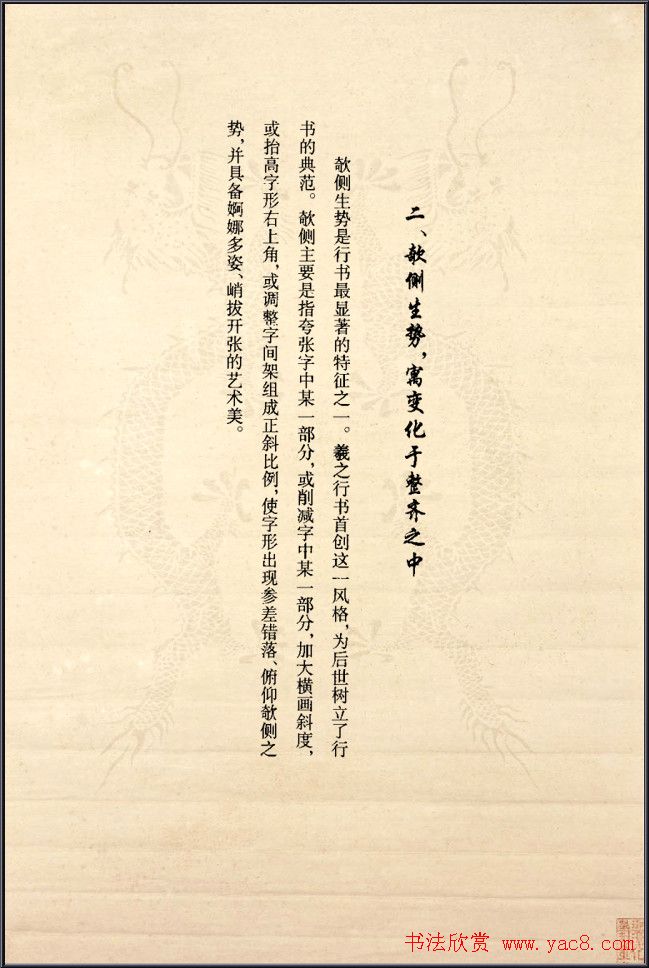 二、欹侧生势，寓变化于整齐之中
欹侧生势是行书最显著的特征之一。羲之行书首创这一风格，为后世树立了行
书的典范。欹侧主要是指夸张字中某一部分，或削减字中某一部分，加大横画斜度，
或抬高字形右上角，或调整字间架组成正斜比例，使字形出现参差错落、俯仰欹侧之
势，并具备婀娜多姿、峭拔开张的艺术美。
书法欣赏 www.yac8.com